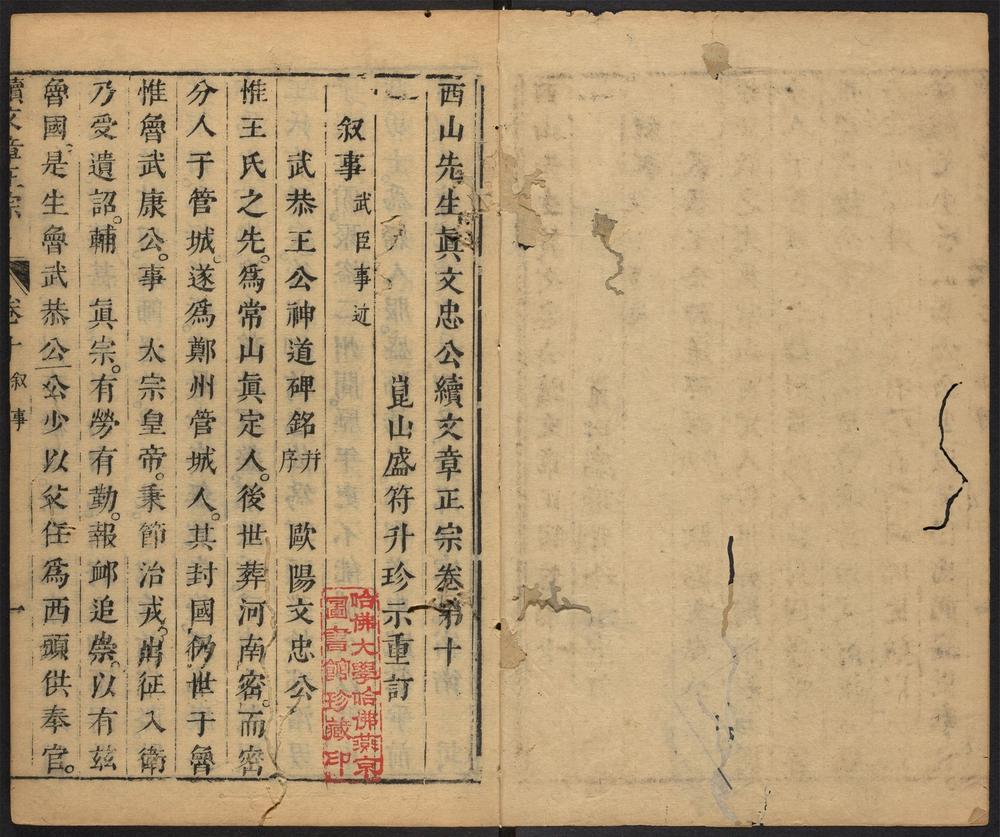 西山先生眞文忠公續文章正宗卷第十
崑山盛符升珍示重訂
叙事武臣事迹
武恭王公神道碑銘并序 歐陽文忠公
惟王氏之先。爲常山眞定人。後世葬河南密。而密
分人于管城。遂爲鄭州管城人。其封國仍世于魯
惟魯武康公。事 太宗皇帝。秉節治戎。出征入衛
乃受遺詔。輔 眞宗。有勞有勤。報卹追崇。以有茲
魯國。是生魯武恭公。公少以父任爲西頭供奉官。
續文章正宗 卷十 叙事 一
哈佛大學哈佛燕京
圖書館珍藏印